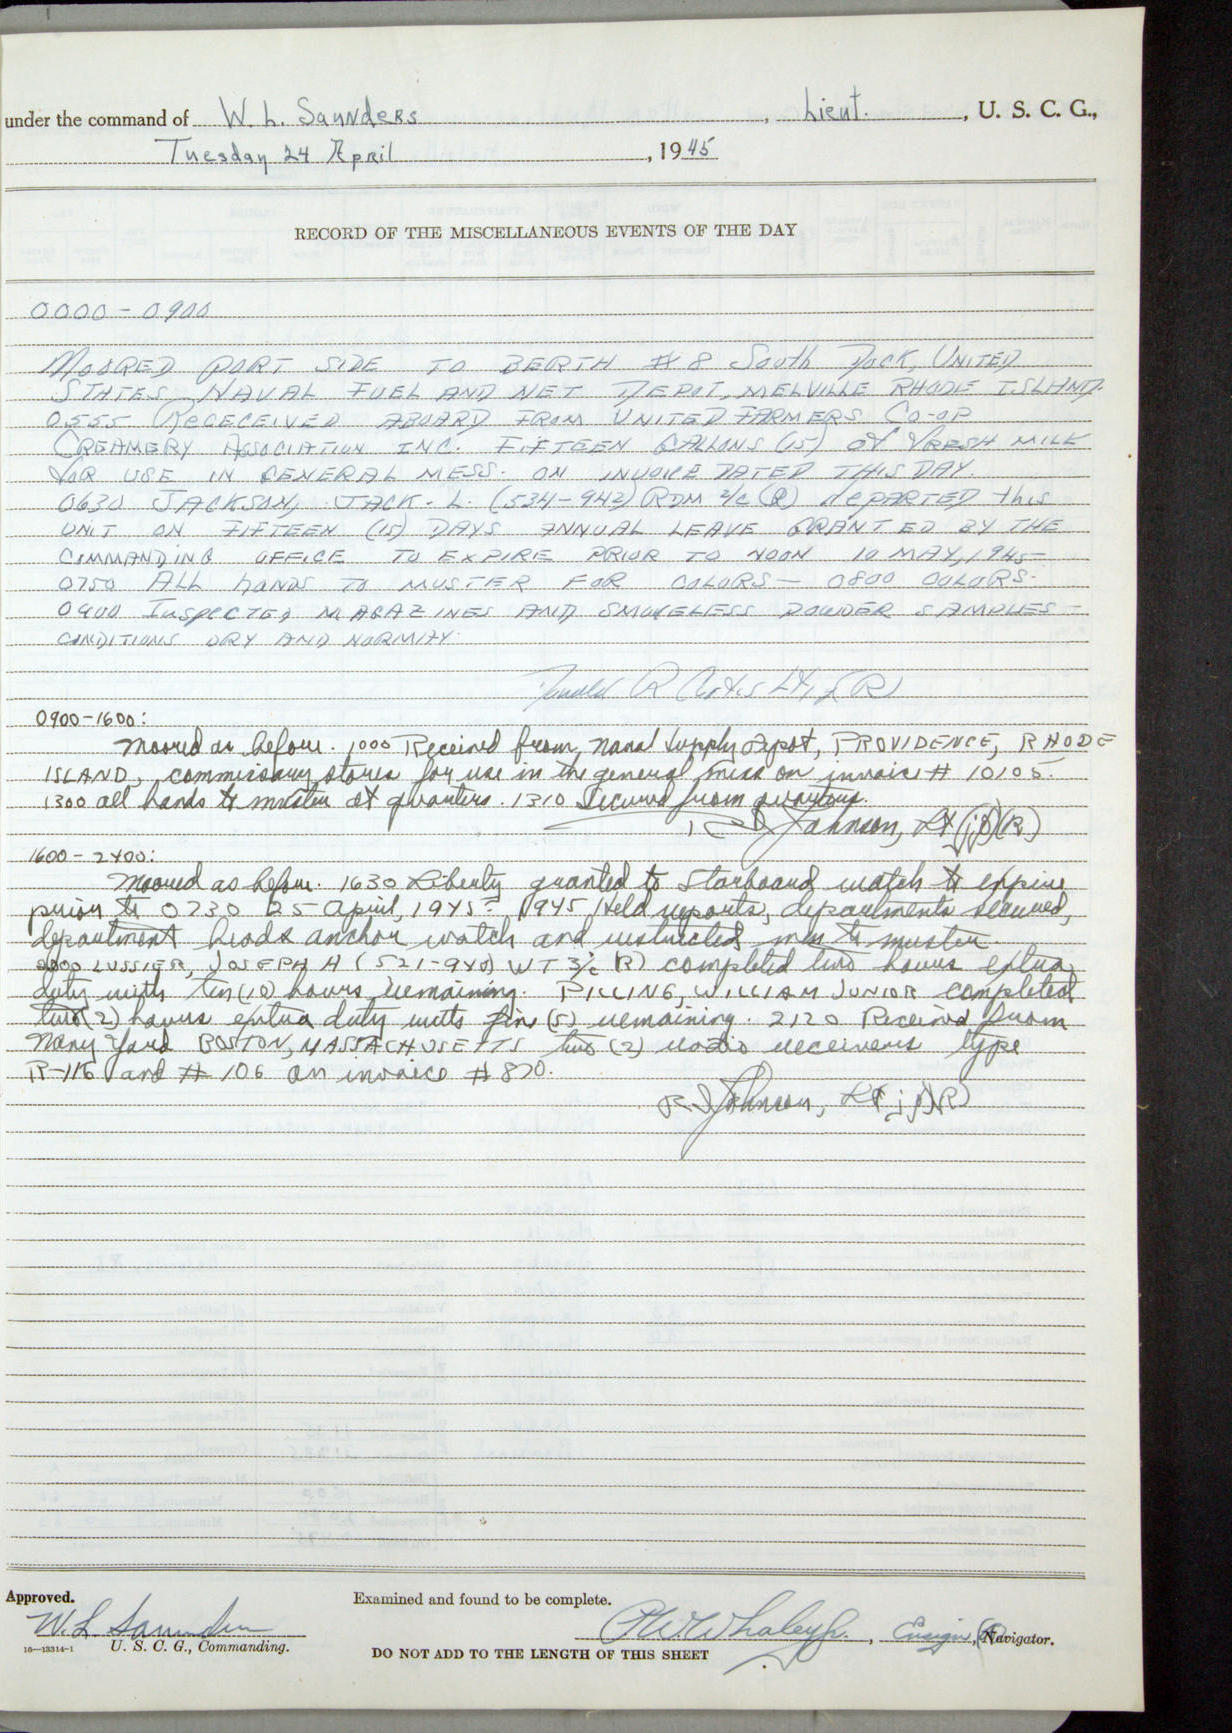 under the command of W. L. Saunders, Lieut., U. S. C. G.,
Tuesday 24 April, 1945
RECORD OF THE MISCELLANEOUS EVENTS OF THE DAY
0000 - 0900
MOORED PORT SIDE TO BERTH # 8 South Dock, UNITED
STATES NAVAL FUEL AND NET DEPOT, MELVILLE RHODE ISLAND.
0555 RECECEIVED ABOARD FROM UNITED FARMERS CO-OP
CREAMERY ASSOCIATION INC. FIFTEEN GALLONS (15) of FRESH MILK
FOR USE IN GENERAL MESS. ON INVOICE DATED THIS DAY.
0630 JACKSON, JACK. L. (534-942) RDM 2/c (R) dEPARTED this
UNIT ON FIFTEEN (15) DAYS ANNUAL LEAVE GRANTED BY THE
COMMANDING OFFICE TO EXPIRE PRIOR TO NOON 10 MAY, 1945-
0750 ALL hANDS TO MUSTER FOR COLORS - 0800 COLORS.
0900 INSPECTED MAGAZINES AND SMOKELESS POWDER SAMPLES -
CONDITIONS DRY AND NORMAL.
R
0900-1600:
Moored as before. 1000 Received from, Naval Supply Depot, PROVIDENCE, RHODE
ISLAND, commissary stores for use in the general mess on invoice # 10105.
1300 all hands to muster at quarters. 1310 Secured from quarters.
Johnson, Lt (jg)(R)
1600 - 2400:
Moored as before. 1630 Liberty granted to Starboard watch to expire
prior to 0730 25 April, 1945. 1945 Held reports, departments secured,
department heads anchor watch and restricted men to muster.
2000 LUSSIER, JOSEPH A (521-940) WT 3/c (R) completed two hours extra
duty with ten (10) hours remaining. PILLING, WILLIAM JUNIOR completed
two (2) hours extra duty with five (5) remaining. 2120 Received from
Navy Yard BOSTON, MASSACHUSETTS two (2) radio receivers type
R-116 and # 106 on invoice # 870.
R Johnson, Lt (jg)(R)
Approved.
Examined and found to be complete.
W. L. Saunders
U. S. C. G., Commanding.
16-13314-1
Whaley Jr., Ensign, Navigator.
DO NOT ADD TO THE LENGTH OF THIS SHEET